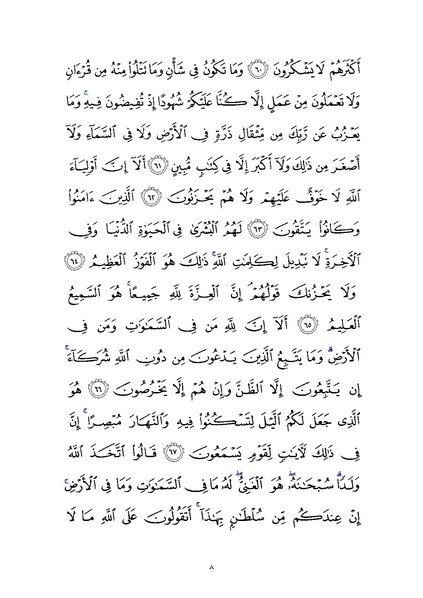 أَكْثَرَهُمْ لَا يَشْكُرُونَ ٦٠ وَمَا تَكُونُ فِي شَأْنٍ وَمَا تَتْلُواْ مِنْهُ مِن قُرْءَانٍ
وَلَا تَعْمَلُونَ مِنْ عَمَلٍ إِلَّا كُنَّا عَلَيْكُمْ شُهُودًا إِذْ تُفِيضُونَ فِيهِۚ وَمَا
يَعْزُبُ عَن رَّبِّكَ مِن مِّثْقَالِ ذَرَّةٍ فِي ٱلْأَرْضِ وَلَا فِي ٱلسَّمَآءِ وَلَآ
أَصْغَرَ مِن ذَٰلِكَ وَلَآ أَكْبَرَ إِلَّا فِي كِتَٰبٍ مُّبِينٍ ٦١ أَلَآ إِنَّ أَوْلِيَآءَ
ٱللَّهِ لَا خَوْفٌ عَلَيْهِمْ وَلَا هُمْ يَحْزَنُونَ ٦٢ ٱلَّذِينَ ءَامَنُواْ
وَكَانُواْ يَتَّقُونَ ٦٣ لَهُمُ ٱلْبُشْرَىٰ فِي ٱلْحَيَوٰةِ ٱلدُّنْيَا وَفِي
ٱلْأٓخِرَةِۚ لَا تَبْدِيلَ لِكَلِمَٰتِ ٱللَّهِۚ ذَٰلِكَ هُوَ ٱلْفَوْزُ ٱلْعَظِيمُ ٦٤
وَلَا يَحْزُنكَ قَوْلُهُمْۘ إِنَّ ٱلْعِزَّةَ لِلَّهِ جَمِيعًاۚ هُوَ ٱلسَّمِيعُ
ٱلْعَلِيمُ ٦٥ أَلَآ إِنَّ لِلَّهِ مَن فِي ٱلسَّمَٰوَٰتِ وَمَن فِي
ٱلْأَرْضِۗ وَمَا يَتَّبِعُ ٱلَّذِينَ يَدْعُونَ مِن دُونِ ٱللَّهِ شُرَكَآءَۚ
إِن يَتَّبِعُونَ إِلَّا ٱلظَّنَّ وَإِنْ هُمْ إِلَّا يَخْرُصُونَ ٦٦ هُوَ
ٱلَّذِي جَعَلَ لَكُمُ ٱلَّيْلَ لِتَسْكُنُواْ فِيهِ وَٱلنَّهَارَ مُبْصِرًاۚ إِنَّ
فِي ذَٰلِكَ لَأٓيَٰتٍ لِّقَوْمٍ يَسْمَعُونَ ٦٧ قَالُواْ ٱتَّخَذَ ٱللَّهُ
وَلَدًاۗ سُبْحَٰنَهُۥۖ هُوَ ٱلْغَنِيُّۖ لَهُۥ مَا فِي ٱلسَّمَٰوَٰتِ وَمَا فِي ٱلْأَرْضِۚ
إِنْ عِندَكُم مِّن سُلْطَٰنٍۭ بِهَٰذَآۚ أَتَقُولُونَ عَلَى ٱللَّهِ مَا لَا
٨